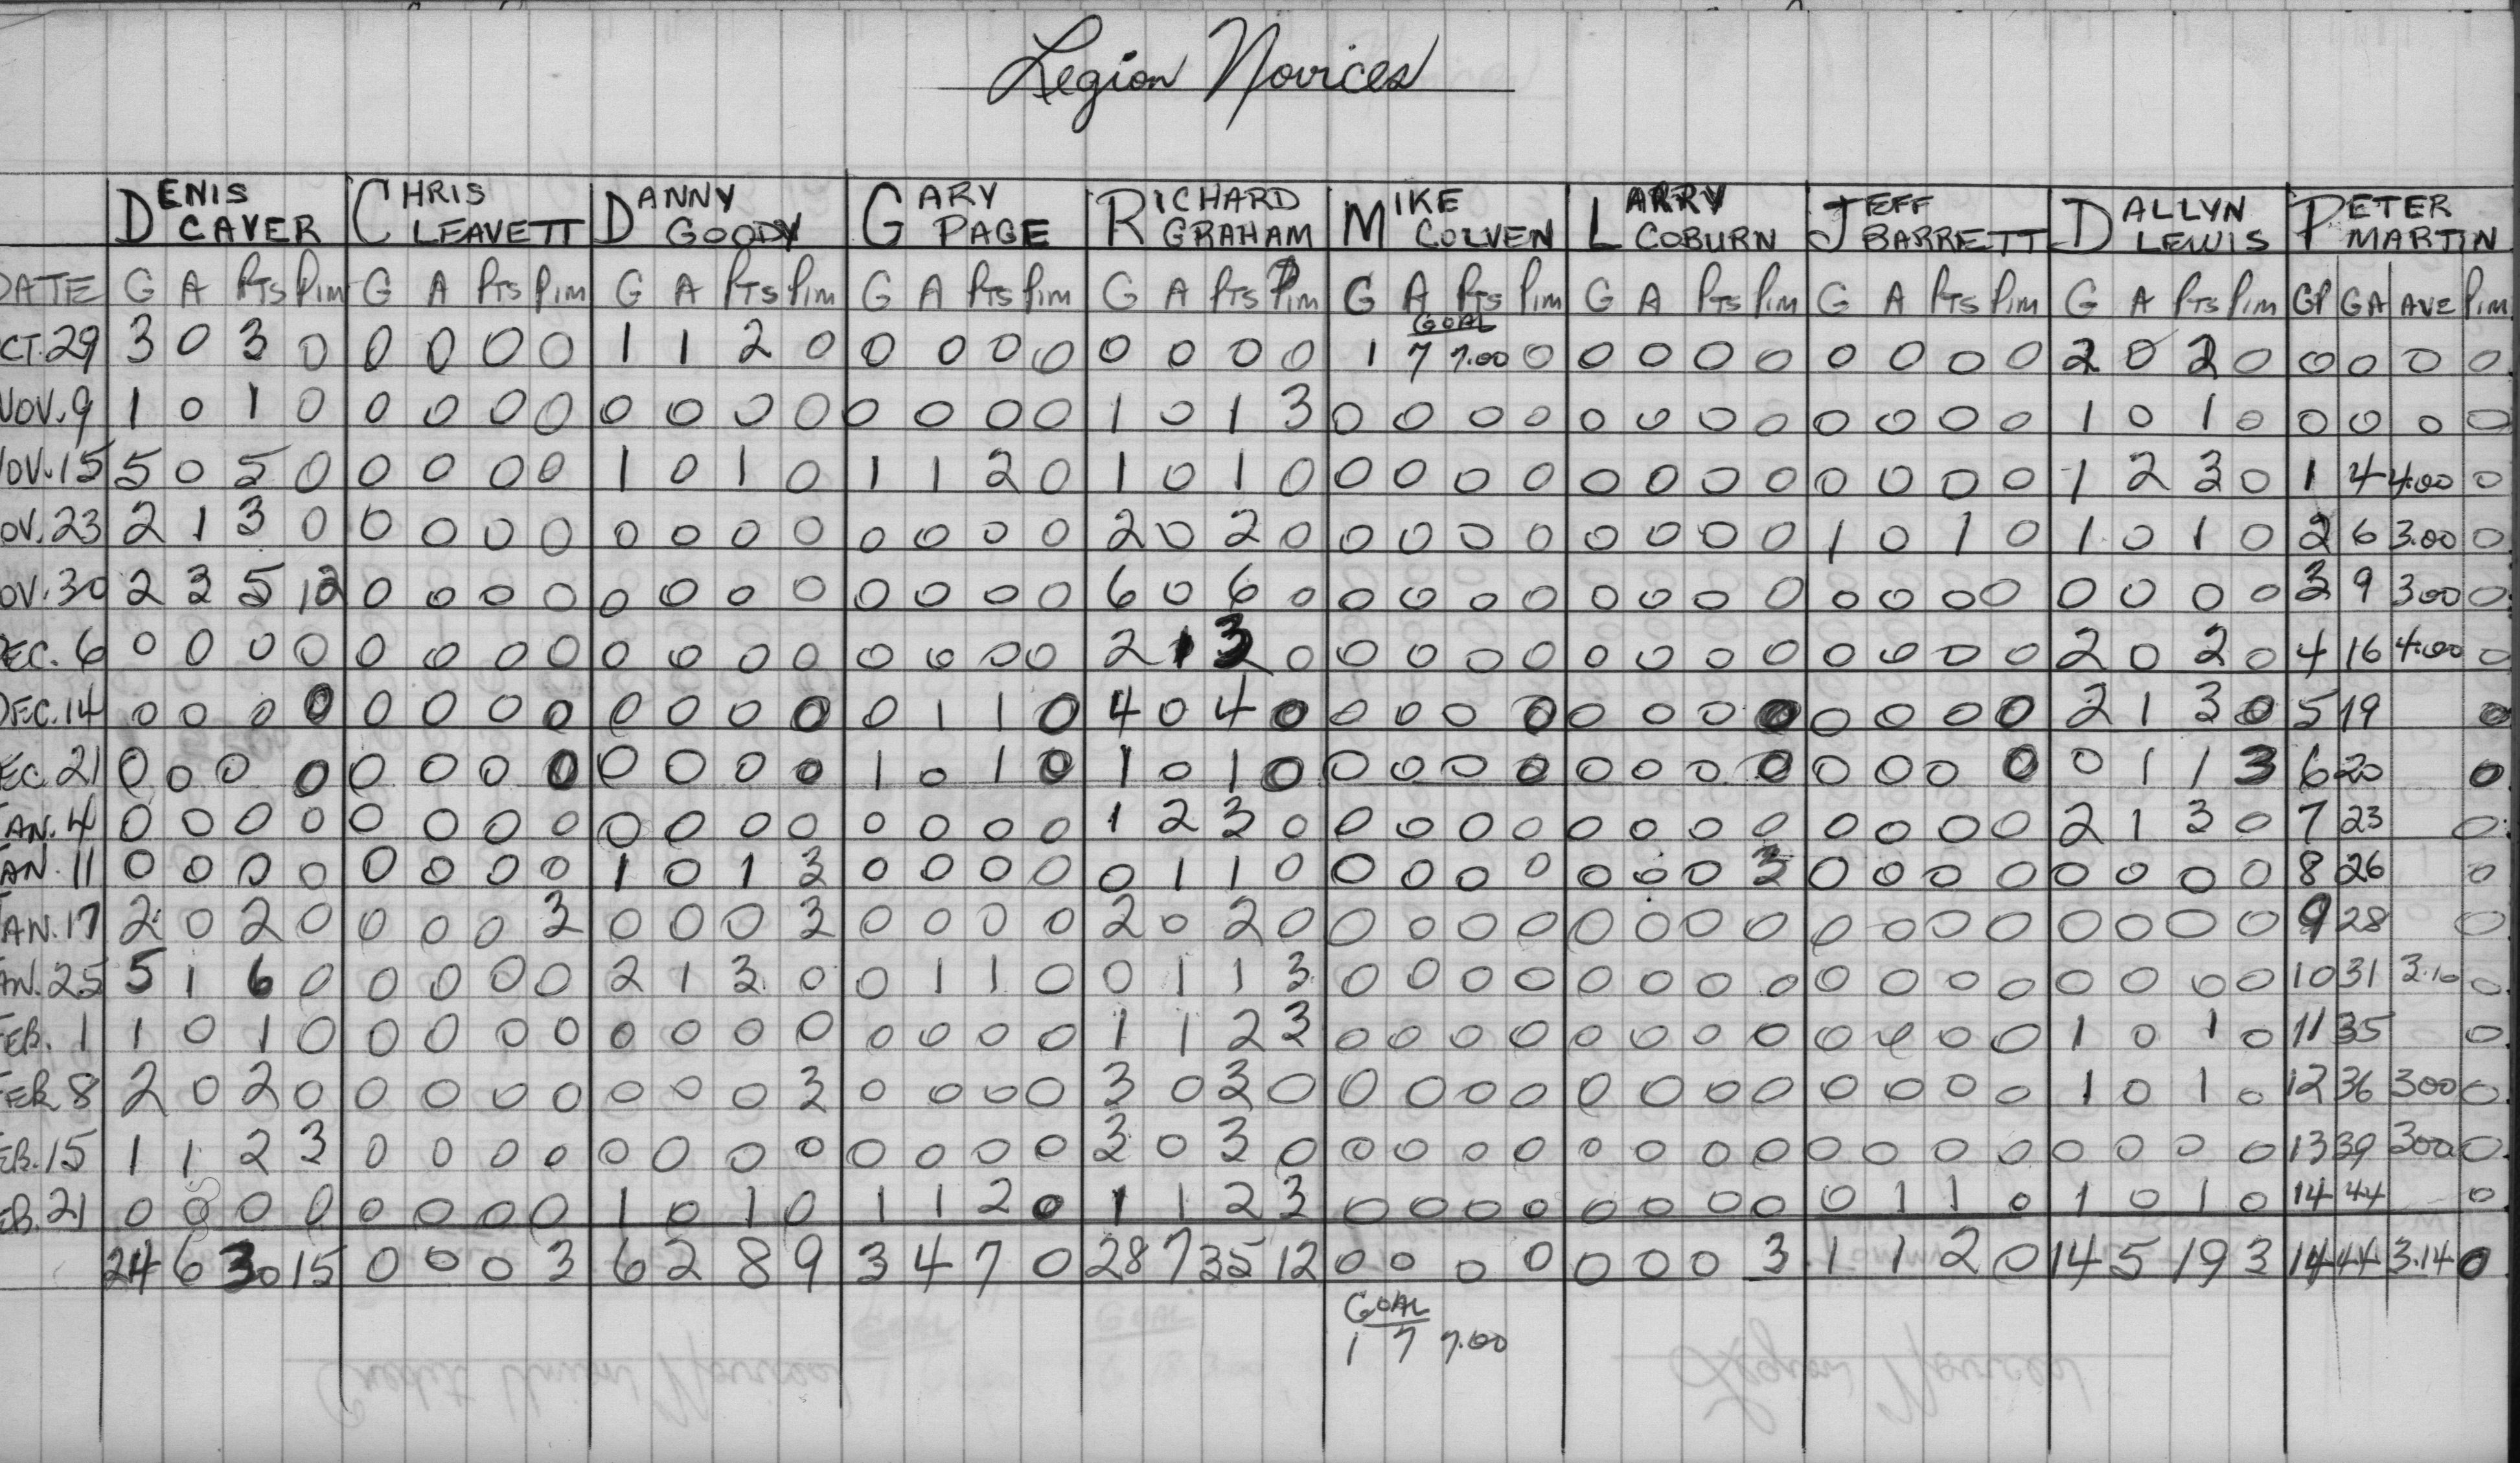 Legion Novices
DENIS CAVER CHRIS LEAVETT DANNY GOODY GARY PAGE RICHARD GRAHAM MIKE COLVEN LARRY COBURN JEFF BARRETT DALLYN LEWIS PETER MARTIN
DATE G A PTS PIM G A PTS PIM G A PTS PIM G A PTS PIM G A PTS PIM G A PTS PIM G A PTS PIM G A PTS PIM G A PTS PIM GP GA AVE PIM
GOAL
CT.29 3 0 3 0 0 0 0 0 1 1 2 0 0 0 0 0 0 0 0 0 1 7 7.00 0 0 0 0 0 0 0 0 0 2 0 2 0 0 0 0 0
NOV.9 1 0 1 0 0 0 0 0 0 0 0 0 0 0 0 0 1 0 1 3 0 0 0 0 0 0 0 0 0 0 0 0 1 0 1 0 0 0 0 0
NOV.15 5 0 5 0 0 0 0 0 1 0 1 0 1 1 2 0 1 0 1 0 0 0 0 0 0 0 0 0 0 0 0 0 1 2 3 0 1 4 4.00 0
OV.23 2 1 3 0 0 0 0 0 0 0 0 0 0 0 0 0 2 0 2 0 0 0 0 0 0 0 0 0 1 0 1 0 1 0 1 0 2 6 3.00 0
OV.30 2 3 5 12 0 0 0 0 0 0 0 0 0 0 0 0 6 0 6 0 0 0 0 0 0 0 0 0 0 0 0 0 0 0 0 0 3 9 300 0
EC.6 0 0 0 0 0 0 0 0 0 0 0 0 0 0 0 0 2 1 3 0 0 0 0 0 0 0 0 0 0 0 0 0 2 0 2 0 4 16 4.00 0
DEC.14 0 0 0 0 0 0 0 0 0 0 0 0 0 1 1 0 4 0 4 0 0 0 0 0 0 0 0 0 0 0 0 0 2 1 3 0 5 19 0
EC.21 0 0 0 0 0 0 0 0 0 0 0 0 1 0 1 0 1 0 1 0 0 0 0 0 0 0 0 0 0 0 0 0 0 1 1 3 6 20 0
JAN.4 0 0 0 0 0 0 0 0 0 0 0 0 0 0 0 0 1 2 3 0 0 0 0 0 0 0 0 0 0 0 0 0 2 1 3 0 7 23 0
AN.11 0 0 0 0 0 0 0 0 1 0 1 3 0 0 0 0 0 1 1 0 0 0 0 0 0 0 0 3 0 0 0 0 0 0 0 0 8 26 0
JAN.17 2 0 2 0 0 0 0 3 0 0 0 3 0 0 0 0 2 0 2 0 0 0 0 0 0 0 0 0 0 0 0 0 0 0 0 0 9 28 0
AN.25 5 1 6 0 0 0 0 0 2 1 3 0 0 1 1 0 0 1 1 3 0 0 0 0 0 0 0 0 0 0 0 0 0 0 0 0 10 31 3.10 0
FEB.1 1 0 1 0 0 0 0 0 0 0 0 0 0 0 0 0 1 1 2 3 0 0 0 0 0 0 0 0 0 0 0 0 1 0 1 0 11 35 0
FEB 8 2 0 2 0 0 0 0 0 0 0 0 3 0 0 0 0 3 0 3 0 0 0 0 0 0 0 0 0 0 0 0 0 1 0 1 0 12 36 300 0
EB.15 1 1 2 3 0 0 0 0 0 0 0 0 0 0 0 0 3 0 3 0 0 0 0 0 0 0 0 0 0 0 0 0 0 0 0 0 13 39 300 0
EB.21 0 0 0 0 0 0 0 0 1 0 1 0 1 1 2 0 1 1 2 3 0 0 0 0 0 0 0 0 0 1 1 0 1 0 1 0 14 44 0
24 6 30 15 0 0 0 3 6 2 8 9 3 4 7 0 28 7 35 12 0 0 0 0 0 0 0 3 1 1 2 0 14 5 19 3 14 44 3.14 0
GOAL
1 7 7.00